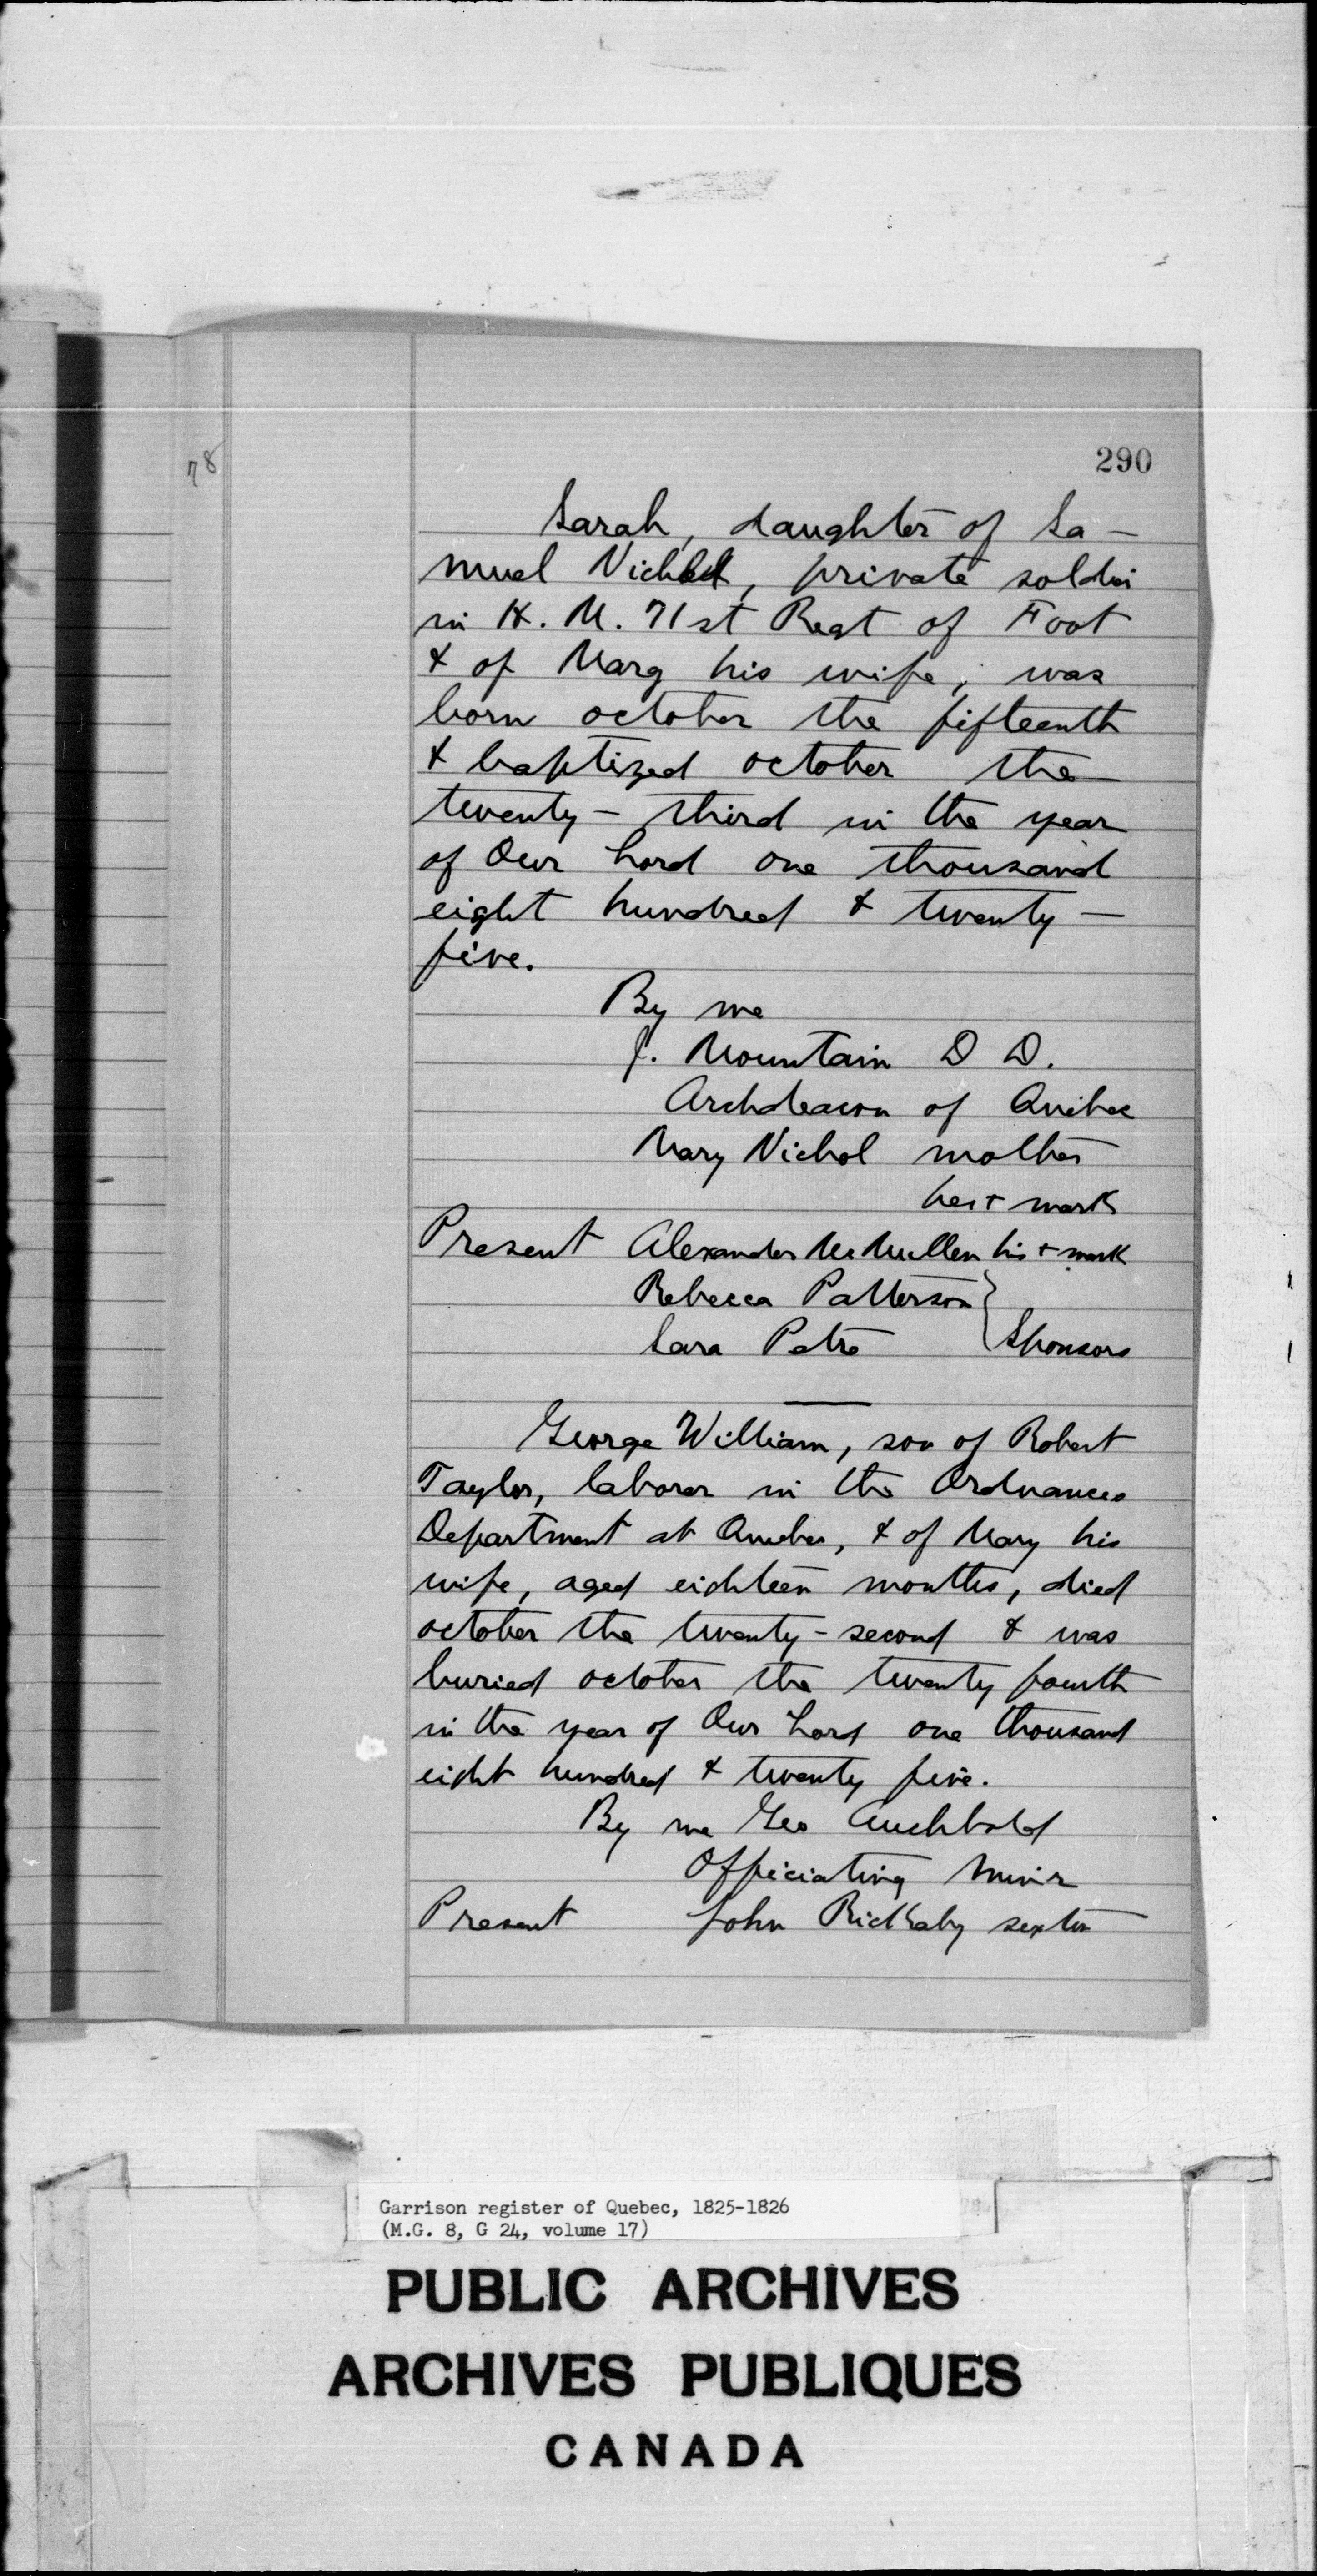 78
290
Sarah, daughter of Sa-
muel Nichol, private soldier
in H. M. 71st Regt of Foot
& of Mary his wife, was
born october the fifteenth
& baptized october the
twenty-third in the year
of Our Lord one thousand
eight hundred & twenty-
five.
By me
J. Mountain D D.
Archdeacon of Quebec
Mary Nichol mother
her + mark
Present Alexander McMullen his + mark
Rebecca Patterson
Sara Petre } Sponsors
George William, son of Robert
Taylor, laborer in the Ordnance
Department at Quebec, & of Mary his
wife, aged eighteen months, died
october the twenty-second & was
buried october the twenty fourth
in the year of Our Lord one thousand
eight hundred & twenty five.
By me Geo Archbold
Officiating Minr
Present John Rickaby sexton
Garrison register of Quebec, 1825-1826
(M.G. 8, G 24, volume 17)
PUBLIC ARCHIVES
ARCHIVES PUBLIQUES
CANADA